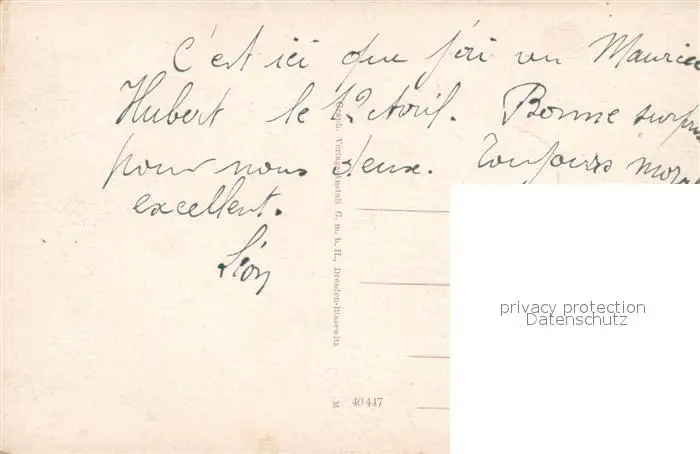 C'est ici que j'ai vu Maurice
Hubert le 12 Avril. Bonne surpri
pour nous deux. Toujours moral
excellent.
Léon
Graph. Verlags-Anstalt G. m. b. H., Dresden-Blasewitz
M 40447
privacy protection
Datenschutz